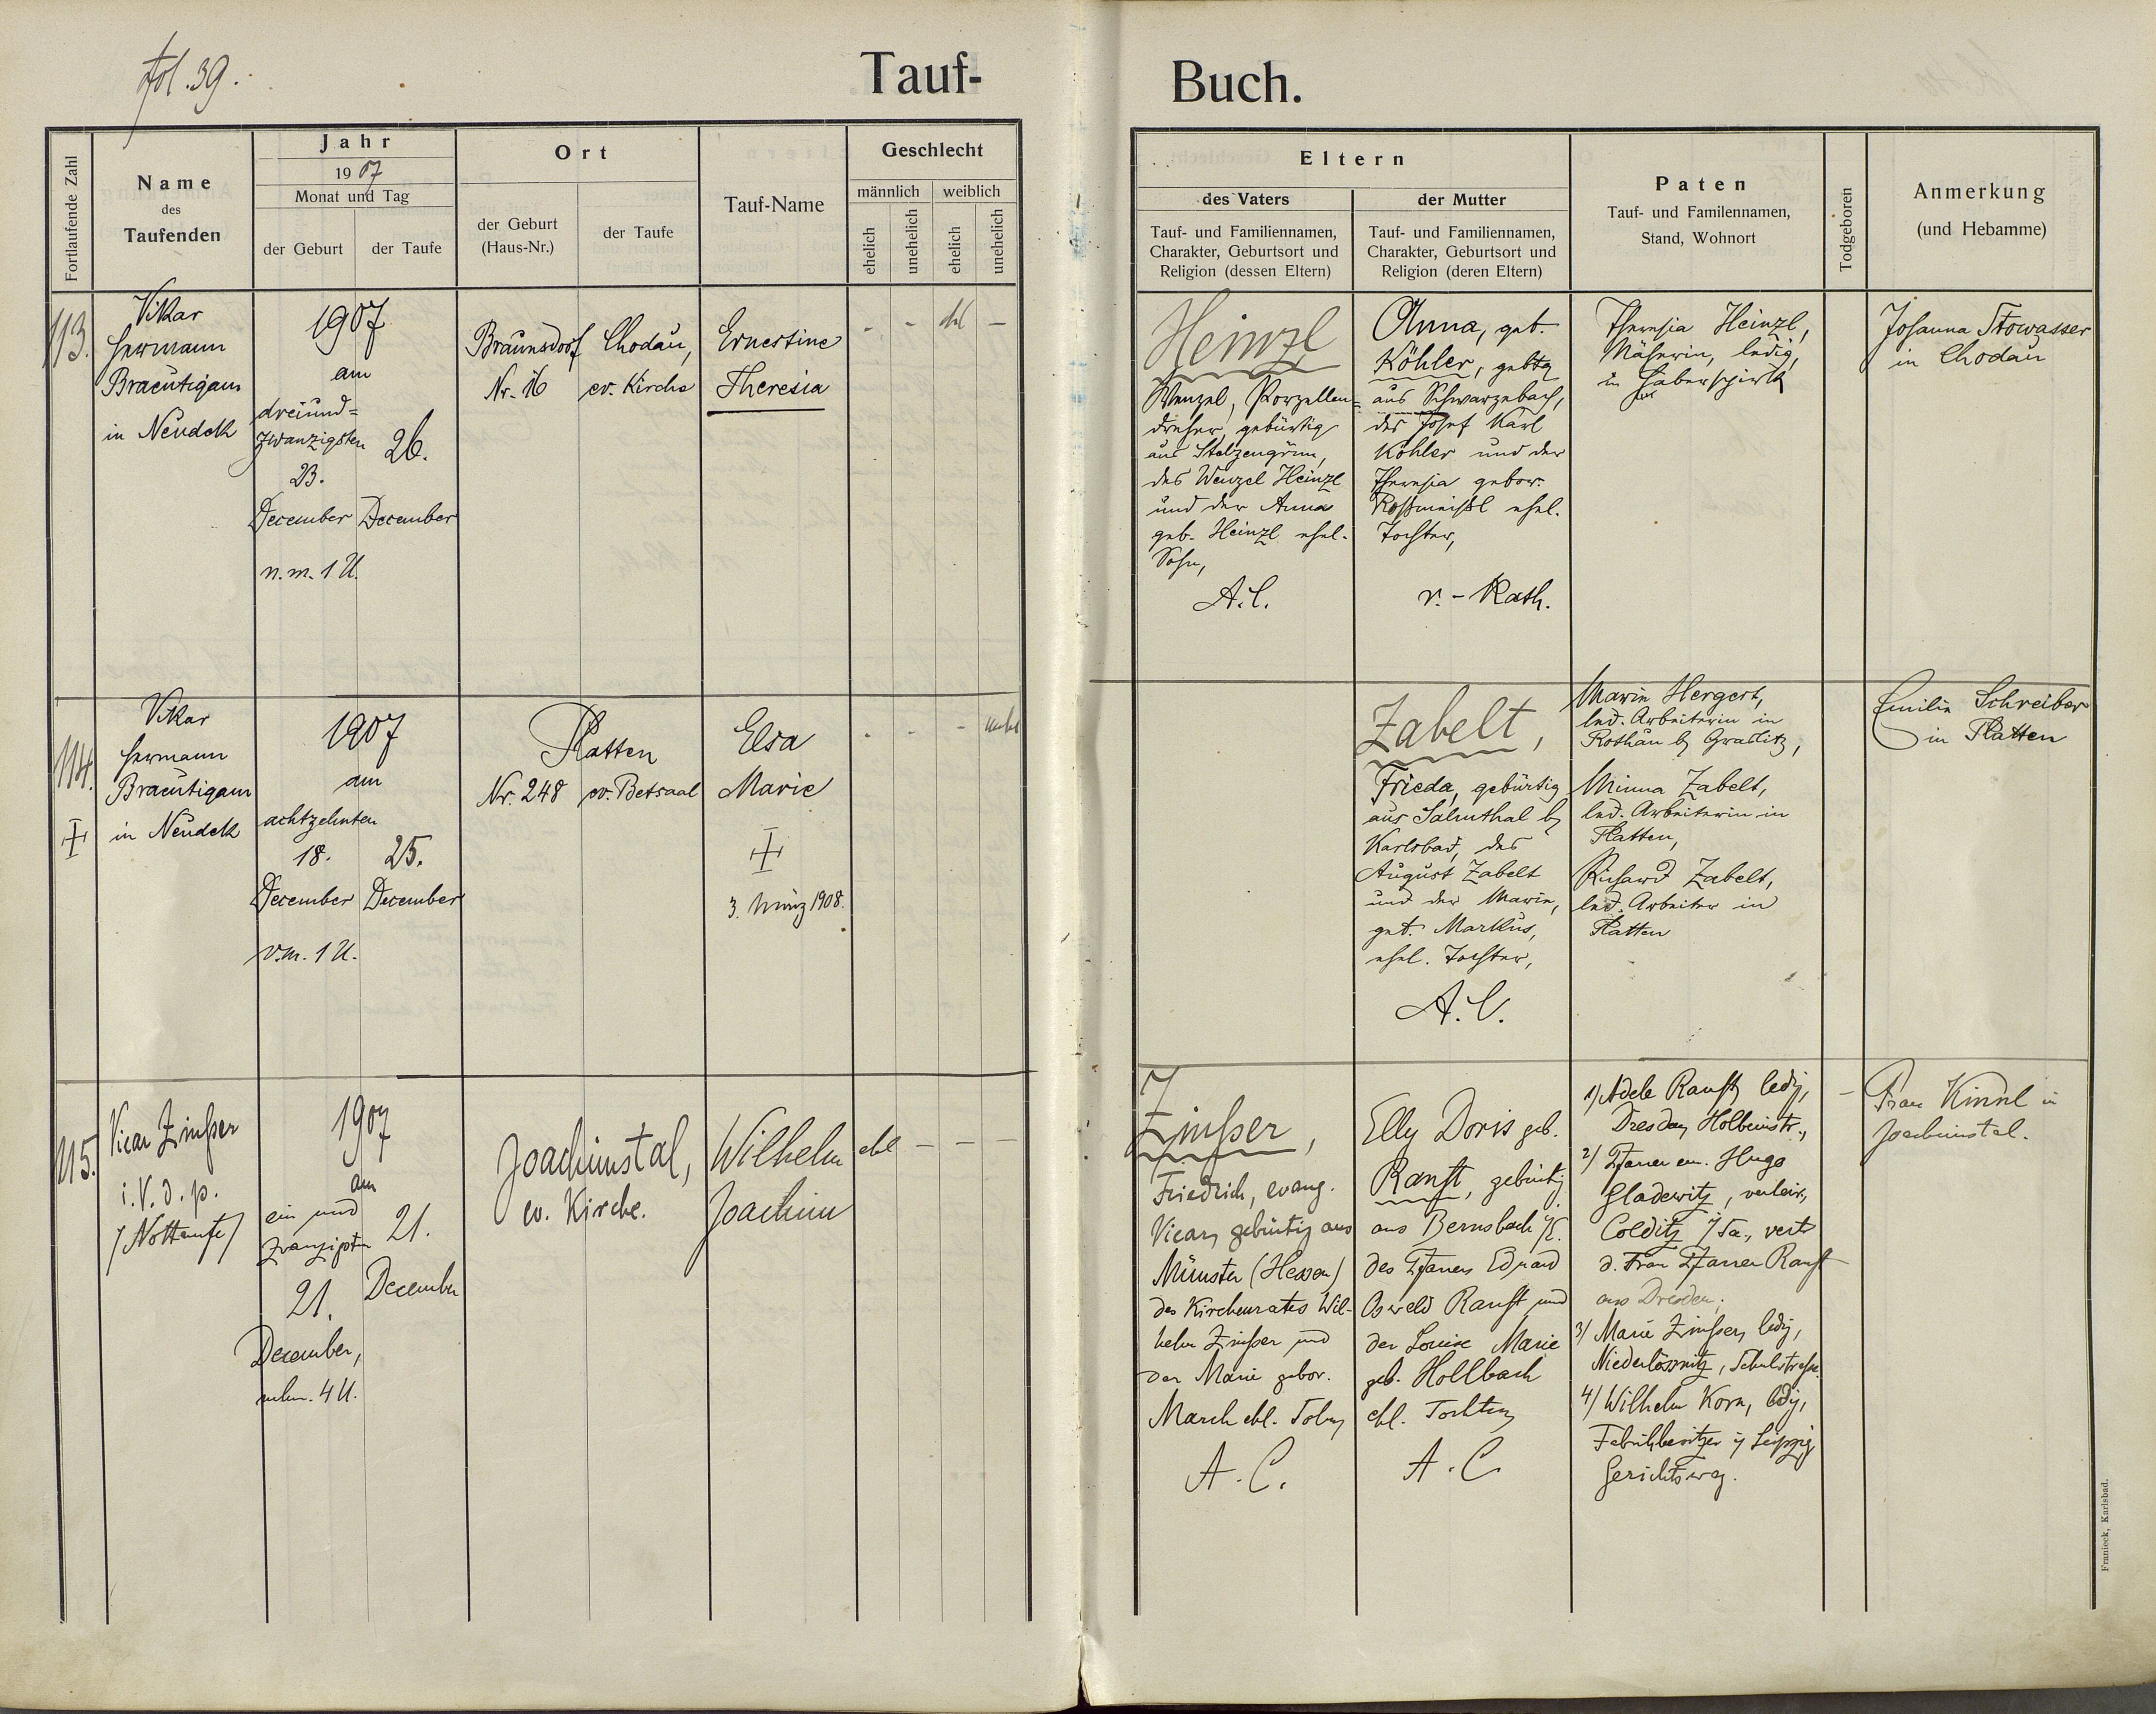 fol. 39.
Tauf-
Buch.
Fortlaufende Zahl
Name
des
Taufenden
Jahr
1907
Monat und Tag
der Geburt
der Taufe
Ort
der Geburt
(Haus-Nr.)
der Taufe
Tauf-Name
Geschlecht
männlich
weiblich
ehelich
unehelich
ehelich
unehelich
Eltern
des Vaters
Tauf- und Familiennamen,
Charakter, Geburtsort und
Religion (dessen Eltern)
der Mutter
Tauf- und Familiennamen,
Charakter, Geburtsort und
Religion (deren Eltern)
Paten
Tauf- und Familennamen,
Stand, Wohnort
Todgeboren
Anmerkung
(und Hebamme)
113.
Vikar
Hermann
Braeutigam
in Neudek
1907
am
dreiund=
zwanzigsten
23.
December
n.m. 1 U.
26.
December
Braunsdorf
Nr. 16
Chodau,
ev. Kirche
Ernestine
Theresia
- - ehl -
Heinzl
Wenzel, Porzellan=
dreher, gebürtig
aus Stelzengrün,
des Wenzel Heinzl
und der Anna
geb. Heinzl ehel.
Sohn,
A.C.
Anna, geb.
Köhler, gebtg
aus Schwarzebach,
des Josef Karl
Köhler und der
Theresia gebor.
Roßmeißl ehel.
Tochter,
r. - Kath.
Theresia Heinzl,
Näherin, ledig,
in Haberspirk
Johanna Stowasser
in Chodau
114.
Vikar
Hermann
Braeutigam
in Neudek
1907
am
achtzehnten
18.
December
v.m. 1 U.
25.
December
Platten
Nr. 248
ev. Betsaal
Elsa
Marie
3. März 1908.
- - - unehl
Zabelt,
Frieda, gebürtig
aus Salmthal b/
Karlsbad, des
August Zabelt
und der Marie,
geb. Markus,
ehel. Tochter,
A.C.
Marie Hergert,
led. Arbeiterin in
Rothau b/ Graslitz,
Minna Zabelt,
led. Arbeiterin in
Platten,
Richard Zabelt,
led. Arbeiter in
Platten
Emilie Schreiber
in Platten
115.
Vicar Zinßer
i. V. d. p.
/Nottaufe/
1907
am
ein und
zwanzigsten
21.
December,
nchm. 4 U.
21.
December
Joachimstal,
ev. Kirche.
Wilhelm
Joachim
ehl - - -
Zinßer,
Friedrich, evang.
Vicar, gebürtig aus
Münster (Hessen)
des Kirchenrates Wil-
helm Zinßer und
der Marie gebor.
March ehl. Sohn,
A. C.
Elly Doris geb.
Ranft, gebürtig
aus Bernsbach
des Pfarrers Eduard
Oswald Ranft und
der Louise Marie
geb. Hollbach
ehl. Tochter,
A. C.
1) Adele Ranft, ledig,
Dresden, Holbeinstr.,
2) Pfarrer em. Hugo
Gladewitz,
Colditz i/Sa., vert.
d. Frau Pfarrer Ranft
aus Dresden;
3) Marie Zinßer, ledig,
Niederlössnitz, Schulstrasse.
4) Wilhelm Korn, ledig,
Fabrikbesitzer in Leipzig
Gerichtsweg.
-
Frau Kinnl in
Joachimstal.
Franieck, Karlsbad.